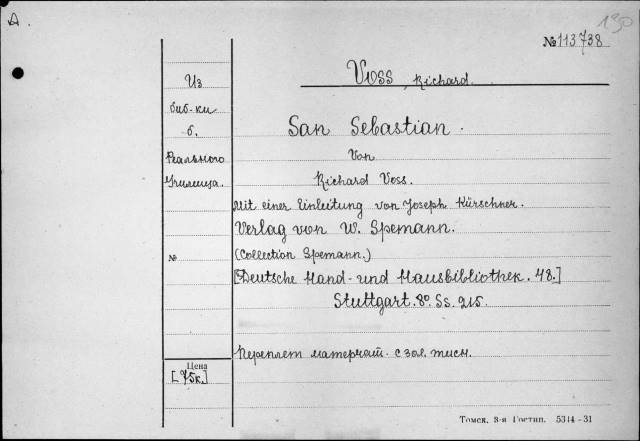 А.
130
№ 113738
Voss, Richard.
Из
биб-ки
б.
Реального
Училища.
San Sebastian.
Von
Richard Voss.
Mit einer Einleitung von Joseph Kürschner.
Verlag von W. Spemann.
№
(Collection Spemann.)
[Deutsche Hand- und Hausbibliothek. 48.]
Stuttgart. 8º. Ss. 215.
Переплет матерчат. с зол. тисн.
Цена
[75к.]
Томск, 3-я Гостип. 5314-31